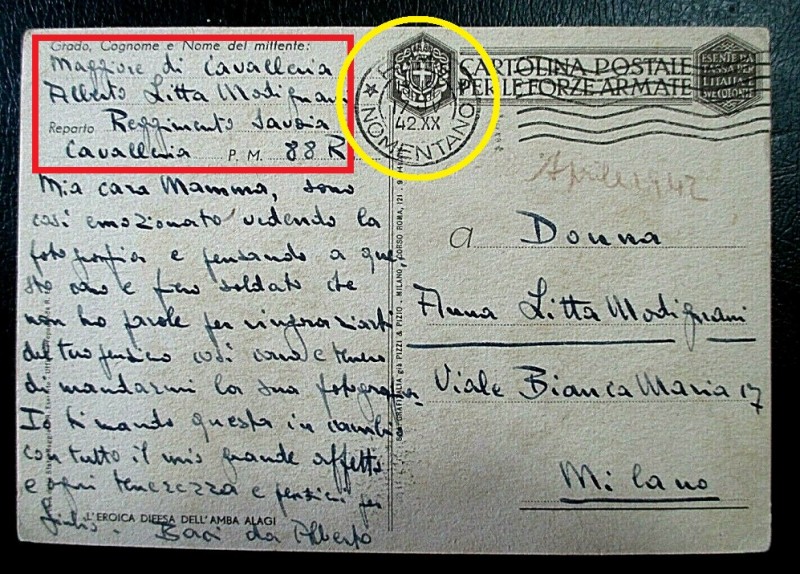 Grado, Cognome e Nome del mittente:
Maggiore di Cavalleria
Alberto Litta Modignani
Reparto Reggimento Savoia
Cavalleria P. M. 88 R
Mia cara Mamma, sono
così emozionato vedendo la
fotografia e pensando a que-
sto caro e fiero soldato che
non ho parole per ringraziarti
del tuo pensiero così caro e tenero
di mandarmi la sua fotografia.
Io ti mando questa in cambio
con tutto il mio grande affetto
e ogni tenerezza e pensieri per
Giulio. Baci da Alberto
L'EROICA DIFESA DELL'AMBA ALAGI
PIZZI & PIZIO - MILANO, CORSO ROMA, 121
42.XX
NOMENTANO
CARTOLINA POSTALE
PER LE FORZE ARMATE
ESENTE DA
TASSA PER
L'ITALIA
Aprile 1942
a Donna
Anna Litta Modignani
Viale Bianca Maria 17
Milano